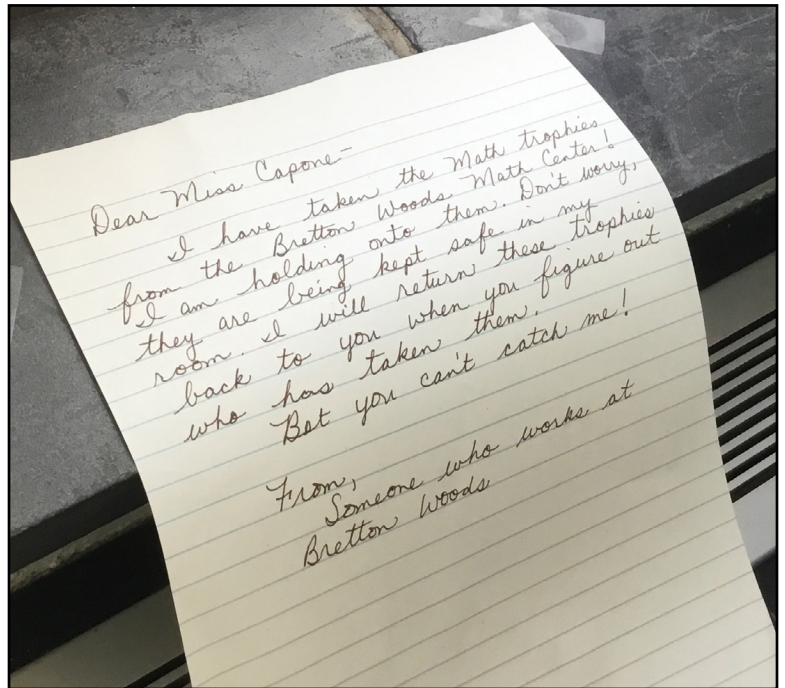 Dear Miss Capone-
I have taken the Math trophies
from the Bretton Woods Math Center!
I am holding onto them. Don't worry,
they are being kept safe in my
room. I will return these trophies
back to you when you figure out
who has taken them.
Bet you can't catch me!
From,
Someone who works at
Bretton Woods